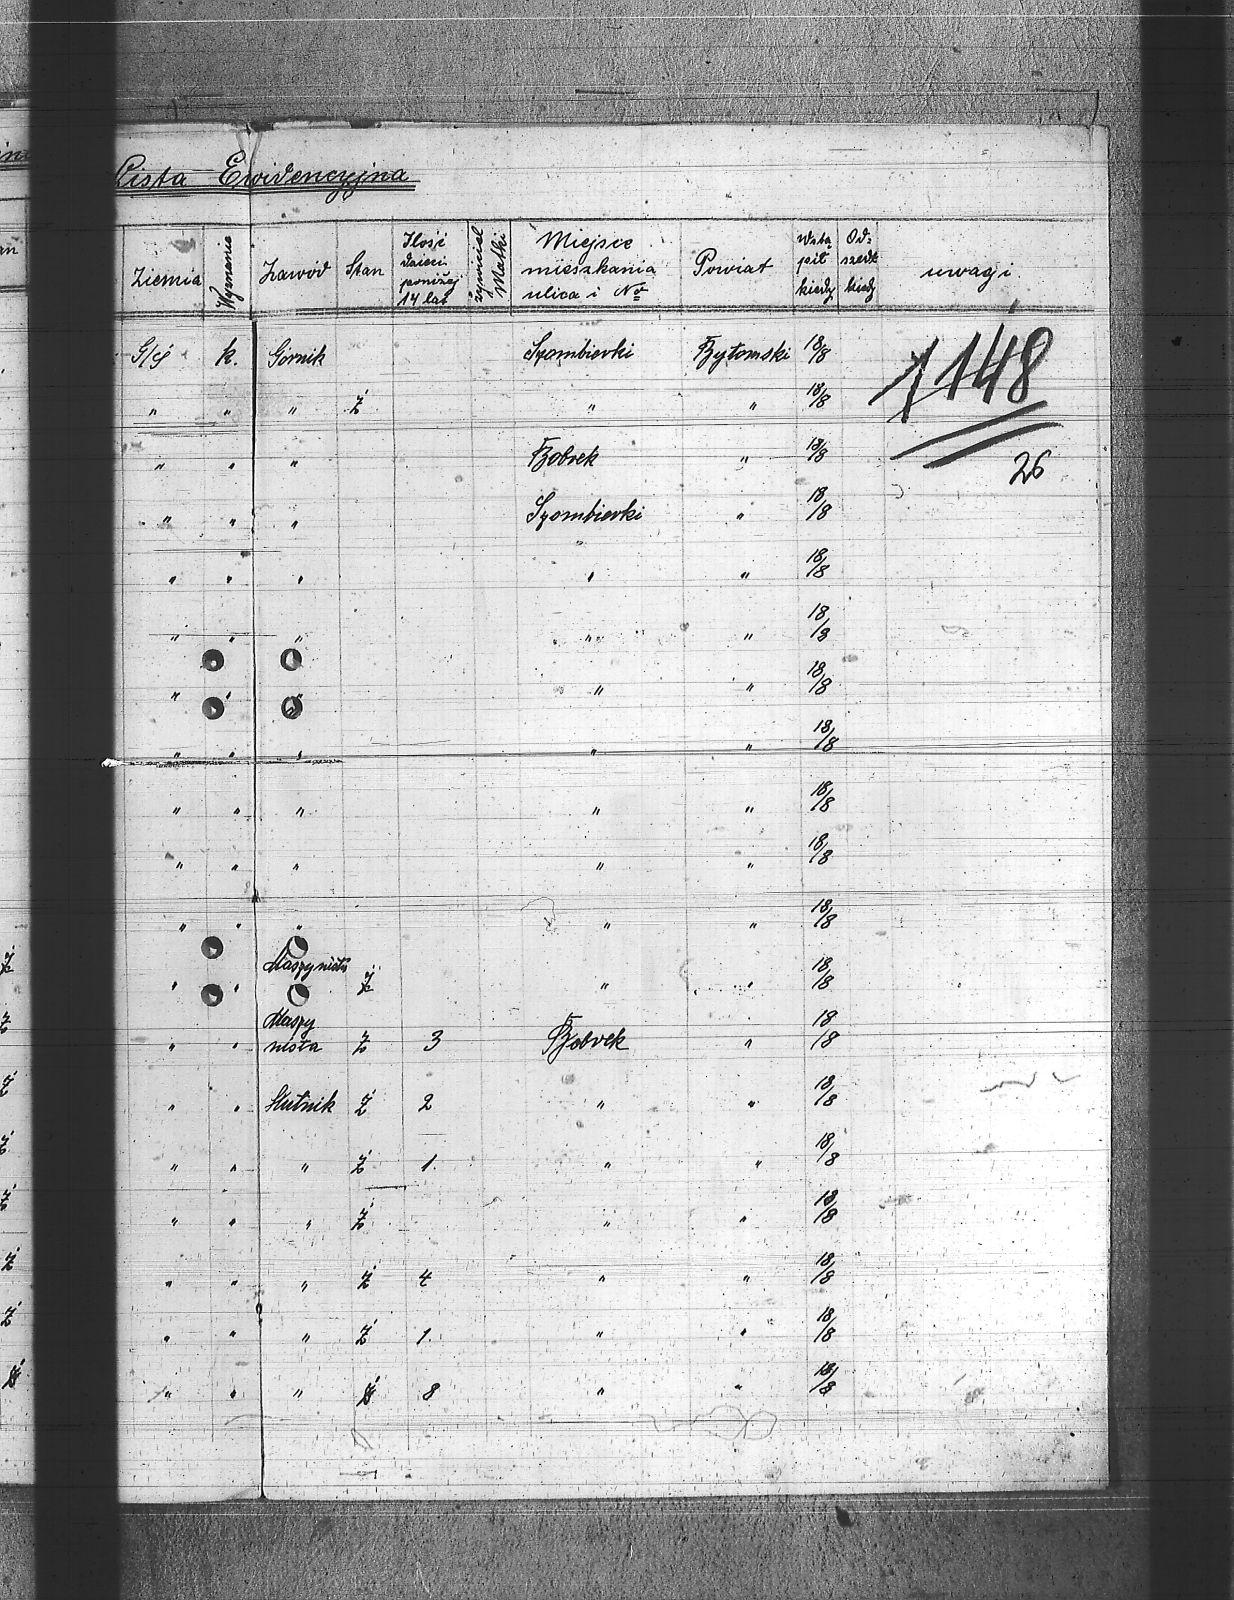 Lista Ewidencyjna
Ziemia Wyznanie Zawód Stan Ilość dzieci poniżej 14 lat żywiciel Matki Miejsce mieszkania ulica i No Powiat Wstąpił kiedy Odszedł kiedy uwagi
G/Śl k. Górnik Szombierki Bytomski 18/8 1148
" " " Ż " " 18/8
" " " Bobrek " 18/8 26
" " " Szombierki " 18/8
" " " " " 18/8
" " " " " 18/8
" " " " " 18/8
" " " " " 18/8
" " " " " 18/8
" " " " " 18/8
" " " " " 18/8
" " Maszynista Ż " " 18/8
" " Maszy
nista Ż 3 Bobrek " 18/8
" " Hutnik Ż 2 " " 18/8
" " " Ż 1. " " 18/8
" " " Ż " " 18/8
" " " Ż 4 " " 18/8
" " " Ż 1. " " 18/8
" " " Ż 8 " " 18/8
Ż
Ż
Ż
Ż
Ż
Ż
Ż